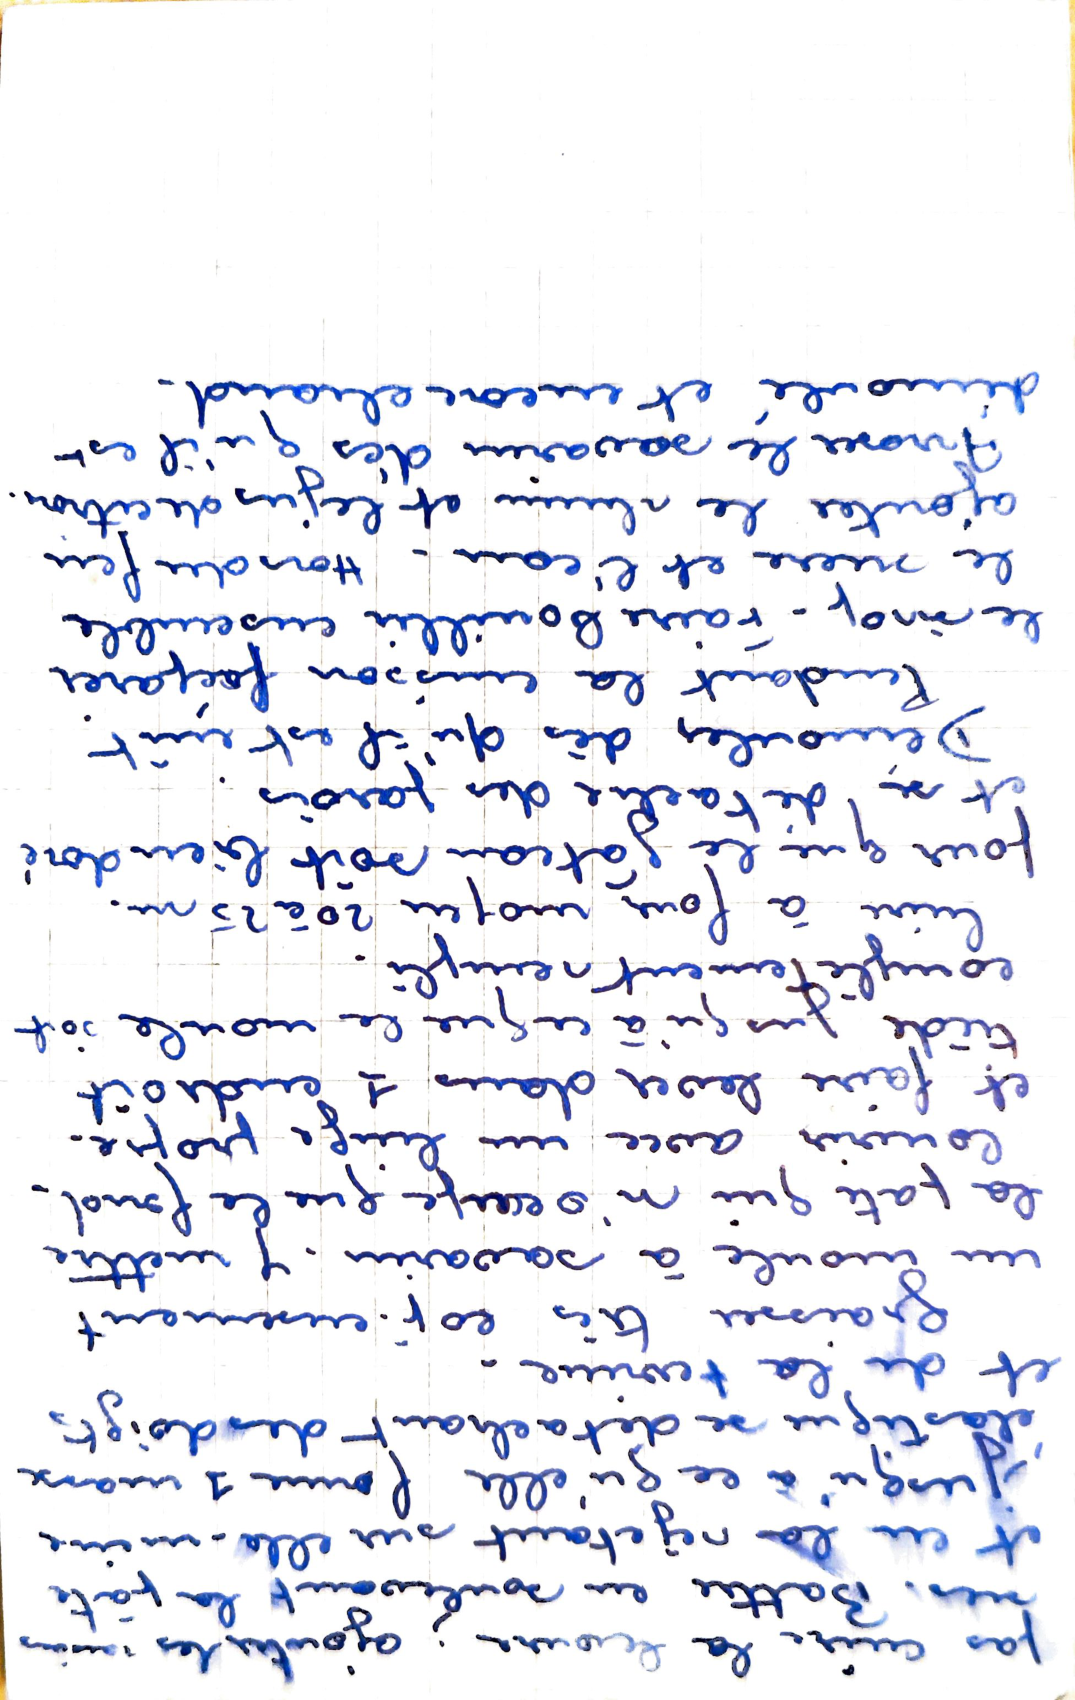 pas cuire la levure; ajouter les raisins
secs. Battre en soulevant la pâte
et en la rejetant sur elle-même
jusqu'à ce qu'elle forme 1 masse
élastique se détachant des doigts
et de la terrine -
Graisser très copieusement
un moule à savarin. Y mettre
la pâte qui n'occupe que le fond.
Couvrir avec un linge propre.
et faire lever dans 1 endroit
tiède jusqu'à ce que le moule soit
complètement rempli.
Cuire à four moyen 20 à 25 m.
pour que le gâteau soit bien doré
et se détache des parois.
Démouler dès qu'il est cuit.
Pendant la cuisson préparer
le sirop - Faire Bouillir ensemble
le sucre et l'eau - Hors du feu
ajouter le rhum et le jus de citron.
Arroser le savarin dès qu'il est
démoulé et encore chaud.